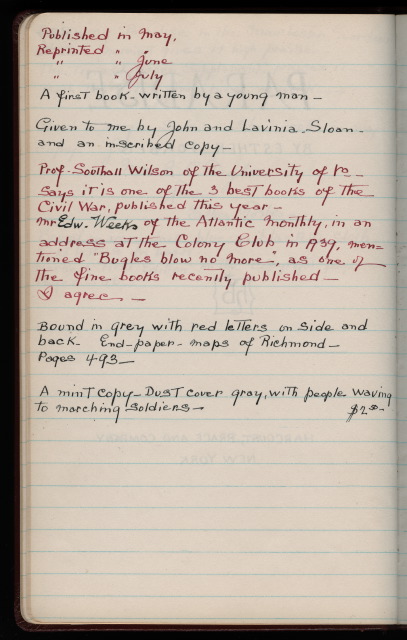 Published in May,
Reprinted "
" " June
" " July
A first book - written by a young man -
Given to me by John and Lavinia Sloan -
and an inscribed copy -
Prof. Southall Wilson of the University of Va
says it is one of the 3 best books of the
Civil War, published this year -
Mr Edw. Weeks of the Atlantic Monthly, in an
address at the Colony Club in 1939, men-
tioned "Bugles blow no more", as one of
the fine books recently published -
I agree -
Bound in grey with red letters on side and
back. End-paper-maps of Richmond -
Pages 493 -
A mint copy - Dust cover gray, with people waving
to marching soldiers - $2.50 -